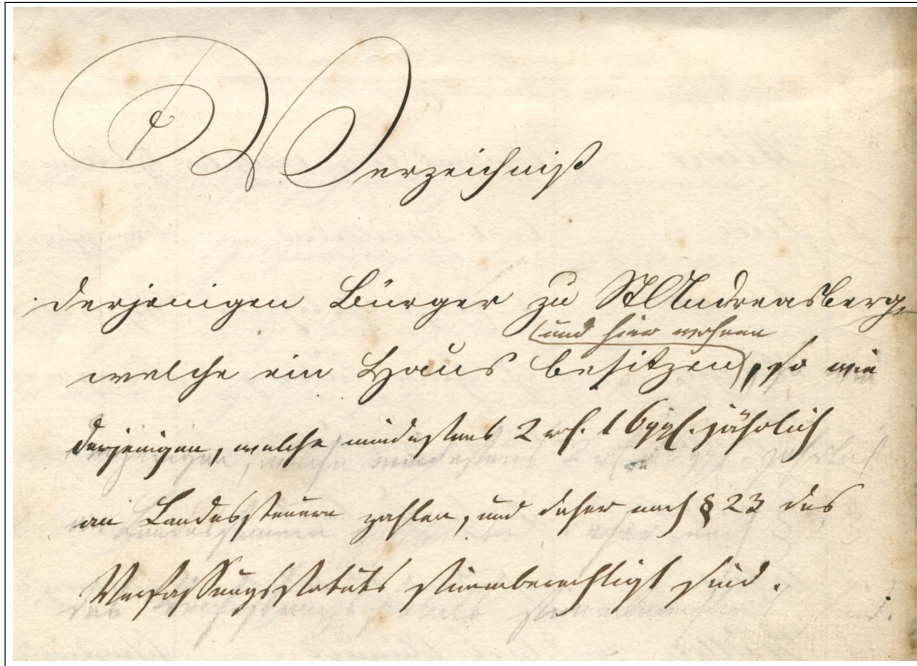 Verzeichniß
derjenigen Bürger zu St Andreasberg,
(und hier wohnen
welche ein Haus besitzen), so wie
derjenigen, welche mindestens 2 rf. 16 ggl. jährlich
an Landessteuern zahlen, und daher nach § 23 des
Verfassungsstatuts stimmberechtigt sind.